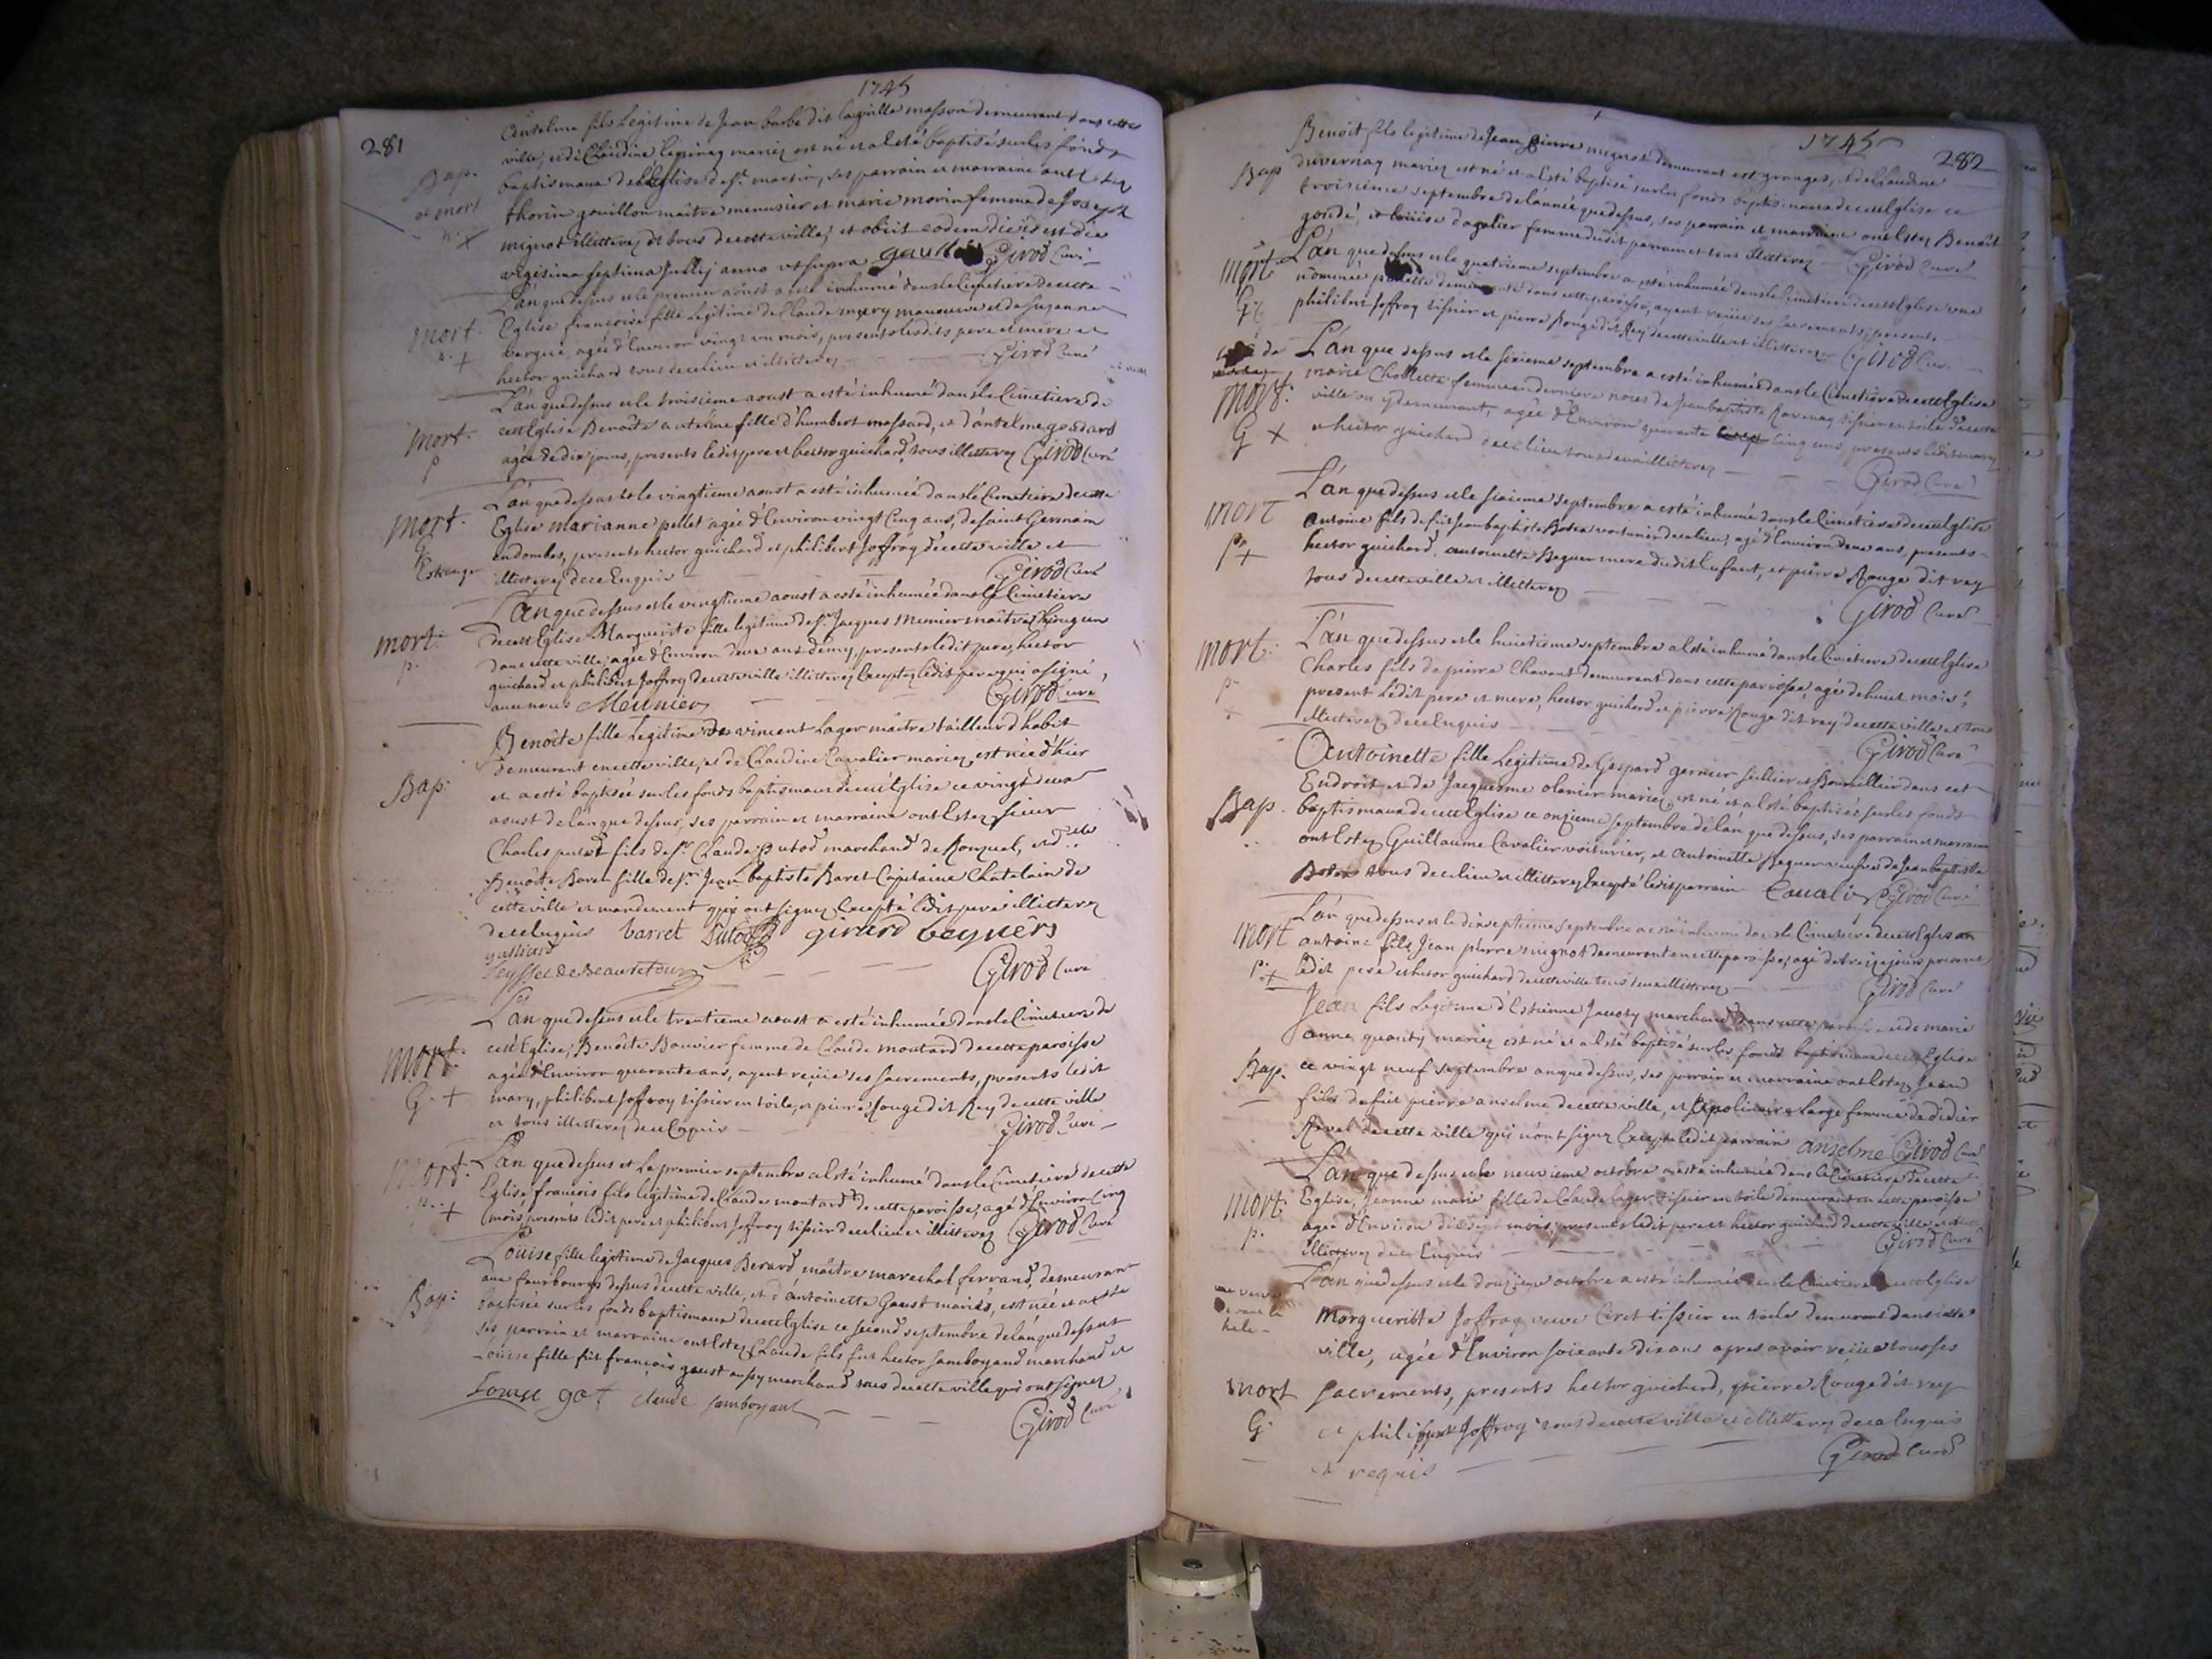 1745
281
Anselme fils Legitime de Jean barbe dit masson demeurant dans cette
ville, et de Claudine mariez est né et a esté baptisé sur les fonds
Bap.
et mort
baptismaux de l'Eglise de st. martin, ses parrain et marraine ont estez
thorin gouillon maître menusier et marie morin femme de Joseph
mignot illitterez et tous de cette ville, et obiit eodem die is est die
vigesima septima Jullij anno ut supra Girod Curé
L'an que dessus et le premier aoust a esté inhumé dans le Cimetiere de cette
mort.
Eglise francoise fille Legitime de Claude mery manouvre et de Suzanne
agée d'Environ vingt un mois, presents lesdits pere et mere et
hector guichard tous de ce lieu et illitterez Girod Curé
L'an que dessus et le troisieme aoust a esté inhumé dans le Cimetiere de
mort.
p
cette Eglise Benoîte anteline fille d'humbert massard, et d'antelme godard
agée de dix jours, presents ledit pere et hector guichard, tous illitterez Girod Curé
L'an que dessus et le vingtieme aoust a esté inhumée dans le Cimetiere de cette
mort.
G
Estranger
Eglise marianne pellet agée d'Environ vingt Cinq ans, de saint Germain
en dombes, presents hector guichard et philibert Joffray de cette ville et
illitterez de ce Enquis Girod Curé
L'an que dessus et le vingtieme aoust a esté inhumée dans le Cimetiere
mort.
p.
de cett Eglise Marguerite fille legitime de sr. Jacques Munier maître Chirugien
dans cette ville, agée d'Environ deux ans demy, presents ledit pere, hector
guichard et philibert Joffray de cette ville illitterez Excepté ledit pere qui a signé,
avec nous Meunier Girod Curé
Benoîte fille Legitime de vincent Lager maitre tailleur d'habit
demeurant en cette ville, et de Claudine Cavalier mariez, est née d'hier
Bap.
et a esté baptisée sur les fonds baptismaux de cett Eglise ce vingt deux
aoust de l'an que dessus, ses parrain et marraine ont estez sieur
Charles putod fils de sr. Claude putod marchand de et dlle
Benoîte Baret fille de sr. Jean baptiste Baret Capitaine Chatelain de
cette ville et mandement qui ont signez Excepté ledit pere illitterez
de ce Enquis barret Putod girard beguers
Seyssel de Beauretour
Girod Curé
L'an que dessus et le trentieme aoust a esté inhumée dans le Cimetiere de
mort.
G. +
cett Eglise, Benoîte Bouvier femme de Claude moutard de cette paroisse
agée d'Environ quarante ans, ayent reçüe ses sacrements, presents ledit
mary, philibert Joffray tissier en toile, et pierre Rouge dit Rey de cette ville
et tous illitterez de ce Enquis Girod Curé
L'an que dessus et Le premier septembre a esté inhumé dans le Cimetiere de cette
mort.
p. +
Eglise, francois fils legitime de Claude moutard de cette paroisse, agé d'Environ Cinq
mois, presents ledit pere et philibert Joffray tissier de ce lieu et illitterez Girod Curé
Louise fille legitime de Jacques Berard maître marechal ferrand, demeurant
aux faurbourgs dessus de cette ville, et d'antoinette Gaust mariés, est née et a esté
Bap.
baptisée sur les fonds baptismaux de cett Eglise ce second septembre de l'an que dessus
ses parrain et marraine ont estez Claude fils fut hector Samboyand marchand et
Loüise fille fut françois gaust aussy marchand tous de cette ville qui ont signez
Louyse got claude samboyant Girod Curé
1745
282
Benoit fils legitime de Jean pierre mignot demeurant est granges, et de Claudine
Bap
duvernay mariez est né et a esté baptisé sur les fonds baptismaux de cett Eglise ce
troisieme septembre de l'année que dessus, ses parrain et marraine ont estez Benoît
godé, et Loüise dagalier femme dudit parrain et tous illitterez Girod Curé
L'an que dessus et le quatrieme septembre a esté inhumée dans le Cimetiere de cett Eglise une
mort
G
nommée demeurante dans cette paroisse, ayent reçüe ses sacrements, presents
philibert Joffray tissier et pierre Rouge dit Rey de cette ville et illitterez Girod Curé
L'an que dessus et le sixieme septembre a esté inhumée dans le Cimetiere de cett Eglise
mort.
G X
marie Chollette femme en derniere noces de Jean baptiste Ravenay tissier en toile de cette
ville ou y demeurant, agée d'Environ quarante Cinq ans, presents ledit mary
et hector guichard de ce lieu tous deux illitterez Girod Curé
L'an que dessus et le sixieme septembre a esté inhumé dans le Cimetiere de cett Eglise
mort
p. +
antoine fils de fut Jean baptiste Botex voiturier de ce lieu, agé d'Environ deux ans, presents
hector guichard, antoinette Beguer mere dudit Enfant, et pierre Rouge dit rey
tous de cette ville et illitterez Girod Curé
L'an que dessus et le huictieme septembre a esté inhumé dans le Cimetiere de cett Eglise
mort.
p.
Charles fils de pierre Chavent demeurant dans cette paroisse agé de huict mois,
present ledit pere et mere, hector guichard et pierre Rouge dit rey de cette ville et tous
illitterez de ce Enquis Girod Curé
Antoinette fille Legitime de Gaspard gernier sellier et Bourrellier dans cet
Endroit, et de Jacquesme olanier mariez, est né et a esté baptisée sur les fonds
Bap.
baptismaux de cett Eglise ce onzieme septembre de l'an que dessus, ses parrain et marraine
ont Estez Guillaume Cavalier voiturier, et antoinette Beguer veufve de Jean baptiste
Botex tous de ce lieu et illitterez Excepté ledit parrain Cavalier Girod Curé
L'an que dessus et le dixseptieme septembre a esté inhumé dans le Cimetiere de cett Eglise
mort
p. +
antoine fils Jean pierre mignot demeurant en cette paroisse, agé de treize jours present
ledit pere et hector guichard de cette ville tous deux illitterez Girod Curé
Jean fils Legitime d'Estienne Jacosty marchand dans cette paroisse et de marie
anne quarty mariez est né et a esté baptisé sur les fonds baptismaux de cett Eglise
Bap.
ce vingt neuf septembre an que dessus, ses parrain et marraine ont Estez Jean
fils de fut pierre anselme de cette ville, et Apolinaire Large femme de didier
Ravel de cette ville qui n'ont signez Excepté ledit parrain anselme Girod Curé
L'an que dessus et le neuvieme octobre a esté inhumée dans le Cimetiere de cette
mort.
p.
Eglise, Jeanne marie fille de Claude Lager tissier en toile demeurant en cette paroisse
agée d'Environ dixsept mois, presents ledit pere et hector guichard de cette ville et
illitterez de ce Enquis Girod Curé
L'an que dessus et le douzieme octobre a esté inhumée dans le Cimetiere de cett Eglise
Margueritte Joffray veuve Ceret tissier en toile demeurant dans cette
ville, agée d'Environ soixante dix ans apres avoir reçüe tous ses
mort
G
sacrements, presents hector guichard, pierre Rouge dit rey
et philippert Joffray tous de cette ville et illitterez de ce Enquis
et requis Girod Curé